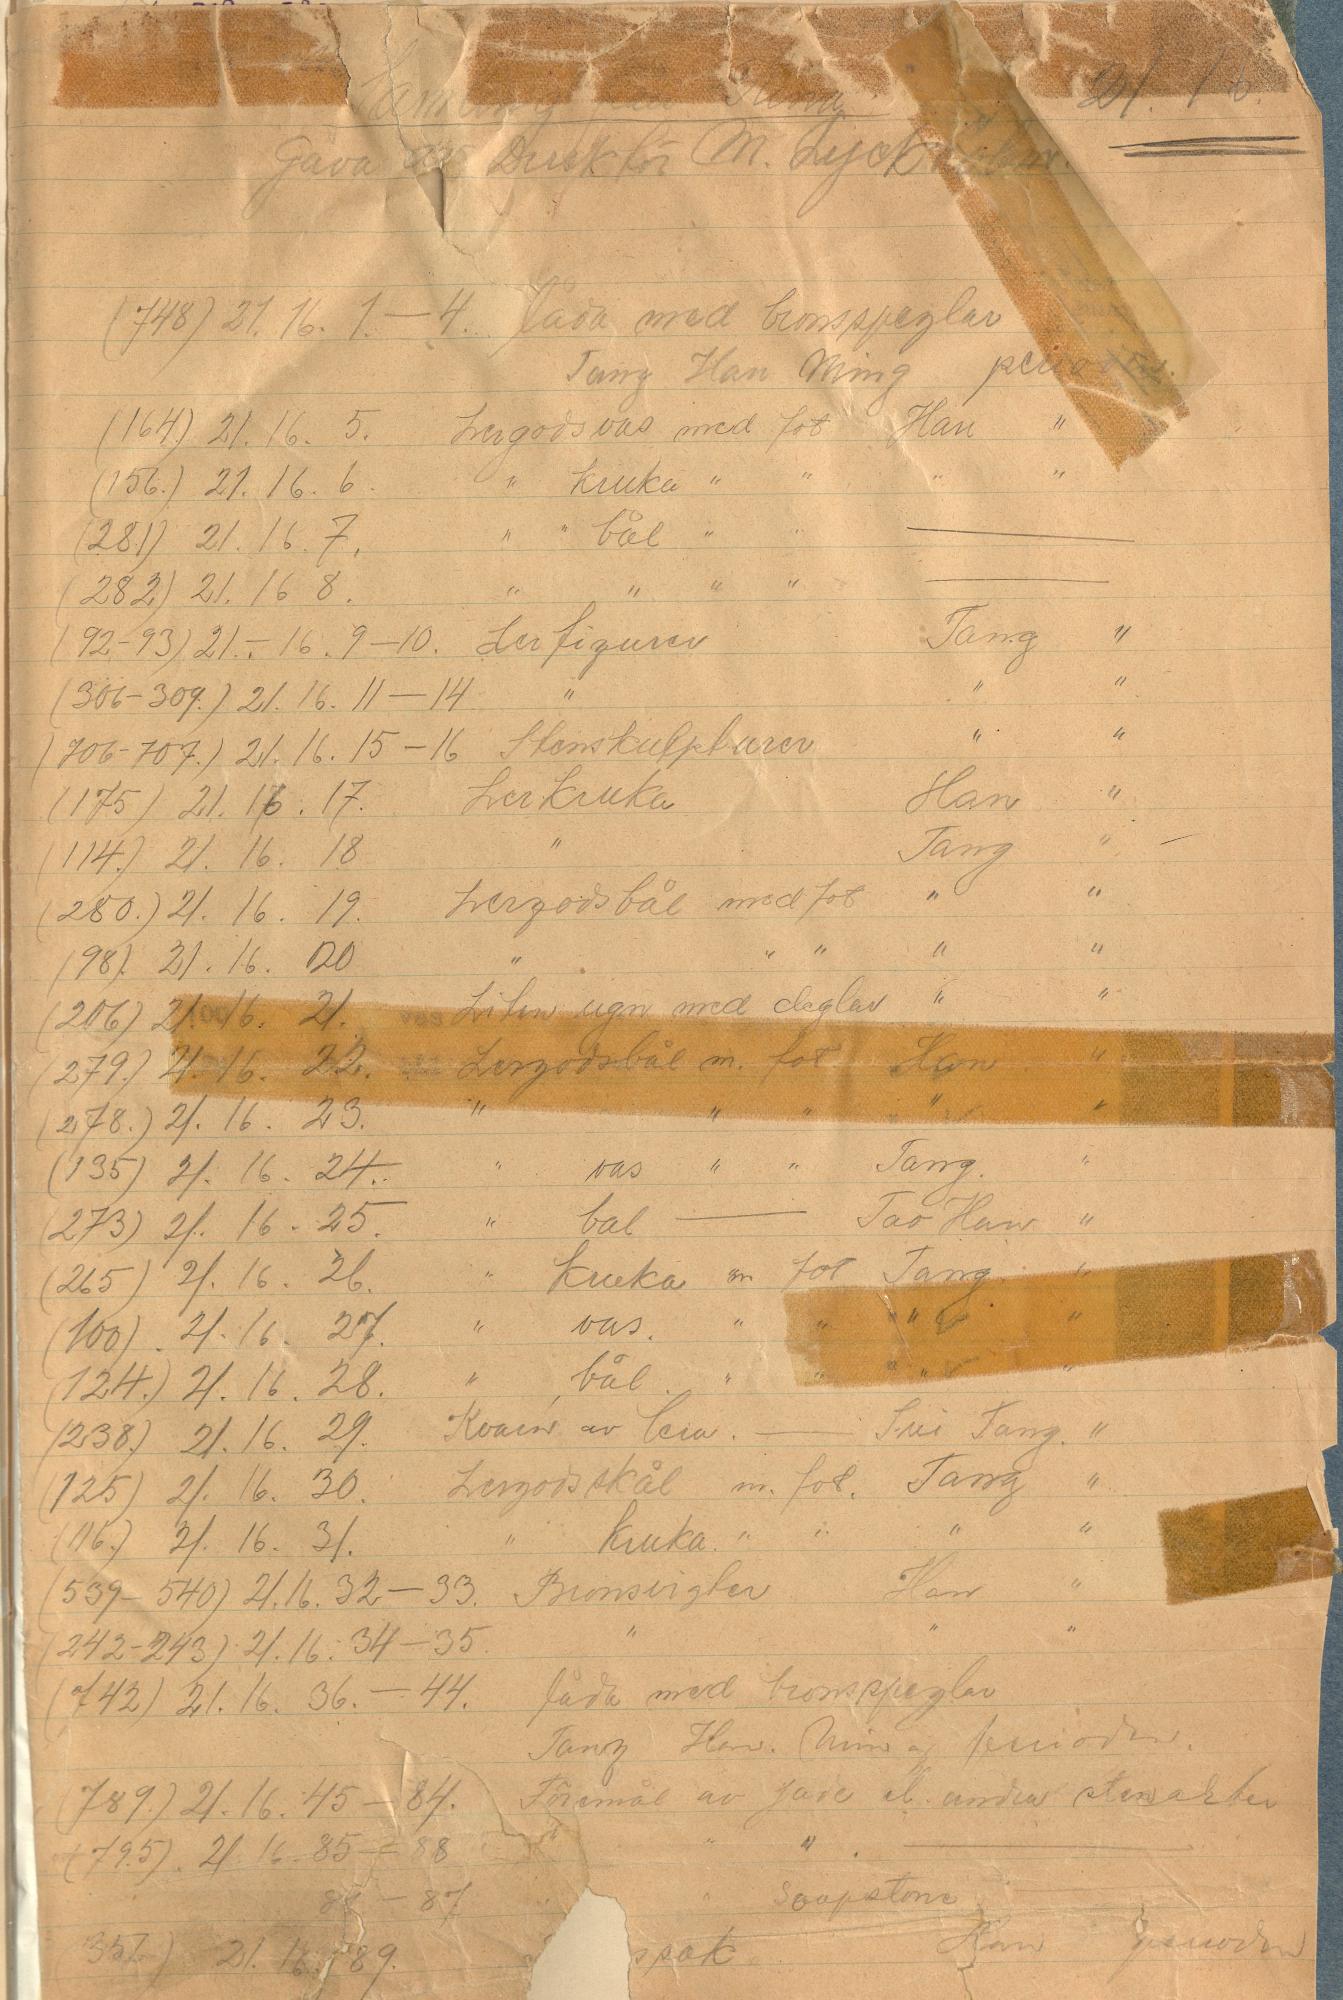 21. 16.
Samling från Kina
Gåva av Direktör M. Lyckholm.
(748) 21. 16. 1. — 4. låda med bronsspeglar
Tang Han Ming perioden.
(164) 21. 16. 5. Lergodsvas med fot Han "
(156.) 21. 16. 6. " kruka " " " "
(281) 21. 16. 7. " " bål " " ———
(282) 21. 16 8. " " " " ———
(92-93) 21.- 16. 9-10. Lerfigurer Tang "
(306-309.) 21. 16. 11-14 " " "
(706-707.) 21. 16. 15-16 Stenskulpturer " "
(175) 21. 16. 17. Lerkruka Han "
(114.) 21. 16. 18 " Tang " —
(280.) 21. 16. 19. Lergodsbål med fot " "
(98). 21. 16. 20 " " " " "
(206) 21. 16. 21. Liten ugn med deglar " "
(279.) 21. 16. 22. Lergodsbål m. fot Han "
(278.) 21. 16. 23. " " " " "
(135) 21. 16. 24. " vas " " Tang. "
(273) 21. 16. 25. " bål ——— Tao Han "
(265) 21. 16. 26. " kruka m fot Tang "
(100). 21. 16. 27. " vas. " " " " "
(124.) 21. 16. 28. " bål. " " " " "
(238.) 21. 16. 29. Kvarn av lera. ——— Sui Tang. "
(125) 21. 16. 30. Lergodsskål m. fot. Tang "
(116.) 21. 16. 31. " kruka. " " " "
(539-540) 21. 16. 32-33. Bronsvigter Han "
(242-243) 21. 16. 34-35. " " "
(742) 21. 16. 36.-44. låda med bronsspeglar
Tang Han. Ming perioden.
(789.) 21. 16. 45-84. Föremål av jade el. andra stenarter
(795). 21. 16. 85-88 " " " . ———
86-87 " " Soapstone
(357.) 21. 16. 89. Han perioden